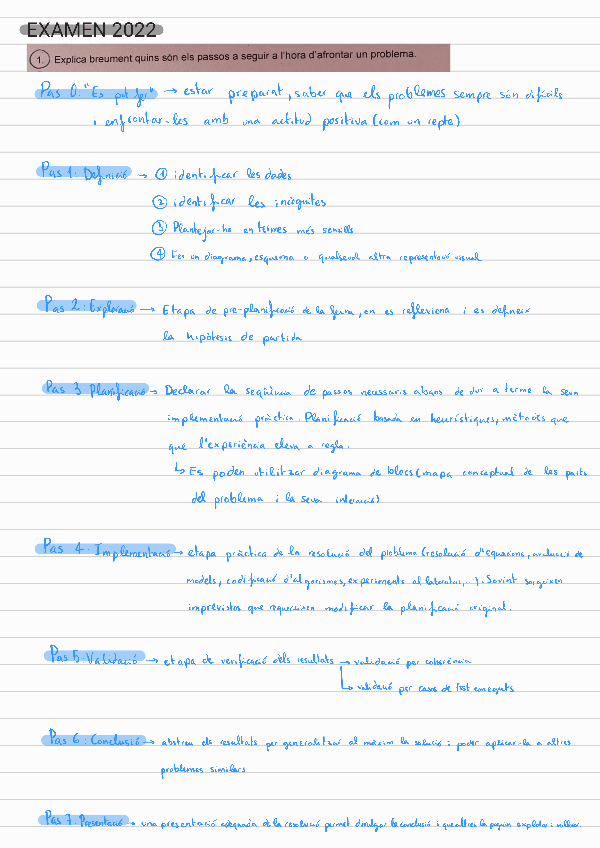 EXAMEN 2022
1. Explica breument quins són els passos a seguir a l'hora d'afrontar un problema.
Pas 0: "Es pot fer" → estar preparat, saber que els problemes sempre són difícils
i enfrontar-los amb una actitud positiva (com un repte)
Pas 1: Definició → ① identificar les dades
② identificar les incògnites
③ Plantejar-ho en termes més senzills
④ Fer un diagrama, esquema o qualsevol altra representació visual
Pas 2: Exploració → Etapa de pre-planificació de la feina, on es reflexiona i es defineix
la hipòtesis de partida
Pas 3: Planificació → Declarar la seqüència de passos necessaris abans de dur a terme la seva
implementació pràctica. Planificació basada en heurístiques, mètodes que
que l'experiència eleva a regla.
↳ Es poden utilitzar diagrama de blocs (mapa conceptual de les parts
del problema i la seva interacció)
Pas 4: Implementació → etapa pràctica de la resolució del problema (resolució d'equacions, avaluació de
models, codificació d'algorismes, experiments al laboratori,...). Sovint sorgeixen
imprevistos que requereixen modificar la planificació original.
Pas 5: Validació → etapa de verificació dels resultats → validació per coherència
↳ validació per casos de test coneguts
Pas 6: Conclusió → abstreu els resultats per generalitzar al màxim la solució i poder aplicar-la a altres
problemes similars
Pas 7: Presentació → una presentació adequada de la resolució permet divulgar la conclusió i que altres la puguin explotar i millorar.